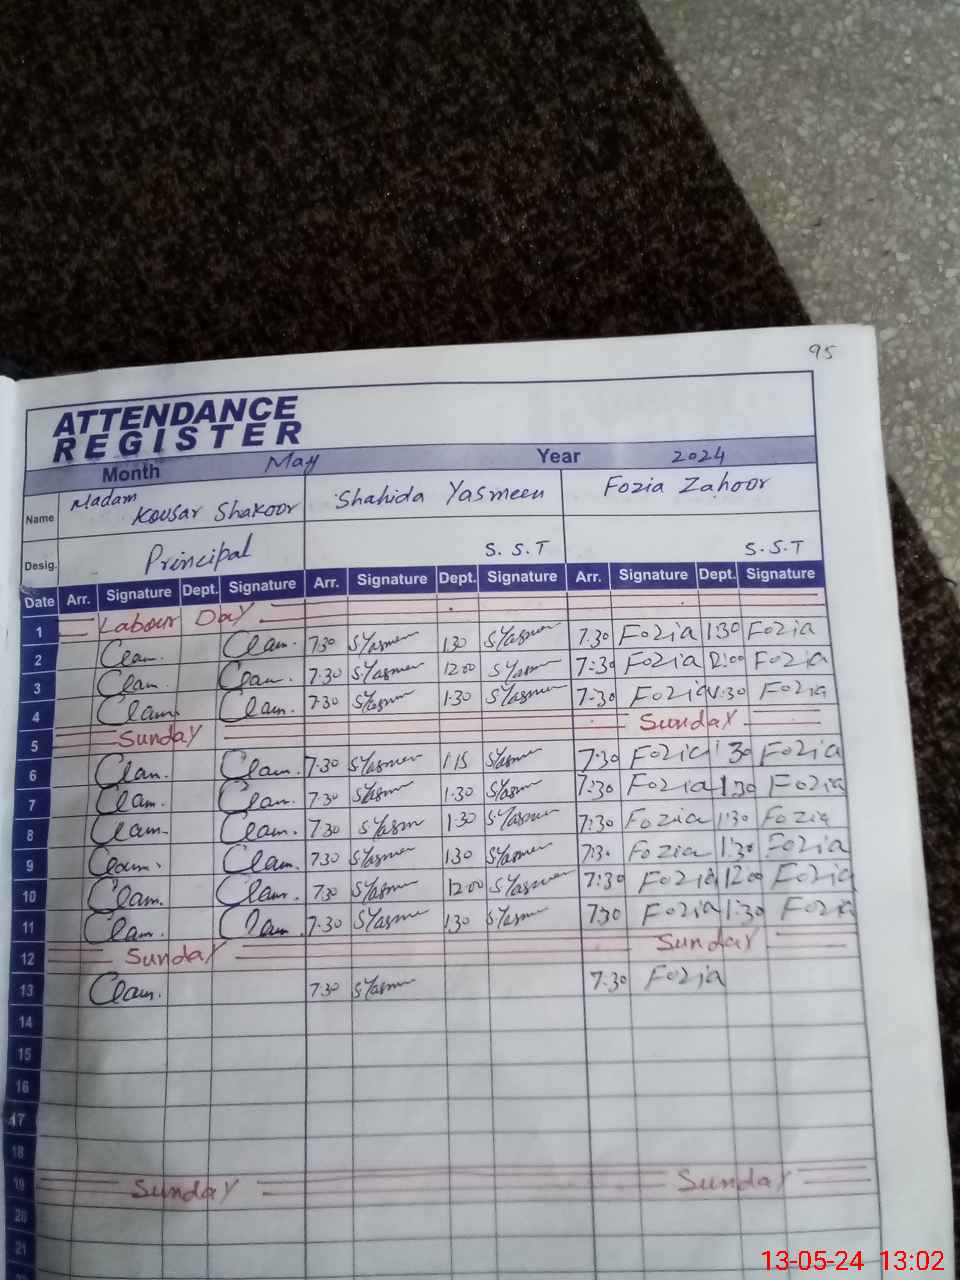 95
ATTENDANCE
REGISTER
Month May Year 2024
Name Madam Kousar Shakoor Shahida Yasmeen Fozia Zahoor
Desig. Principal S.S.T S.S.T
Date Arr. Signature Dept. Signature Arr. Signature Dept. Signature Arr. Signature Dept. Signature
1 Labour Day
2 7.30 SYasmeen 1.30 SYasmeen 7.30 Fozia 1:30 Fozia
3 7.30 SYasmeen 12:00 SYasmeen 7:30 Fozia 12:00 Fozia
4 7.30 SYasmeen 1.30 SYasmeen 7:30 Fozia 1:30 Fozia
5 Sunday Sunday
6 7.30 SYasmeen 1.15 SYasmeen 7:30 Fozia 1 30 Fozia
7 7.30 SYasmeen 1.30 SYasmeen 7:30 Fozia 1:30 Fozia
8 7.30 SYasmeen 1.30 SYasmeen 7:30 Fozia 1:30 Fozia
9 7.30 SYasmeen 1.30 SYasmeen 7:3 Fozia 1:30 Fozia
10 7.30 SYasmeen 12:00 SYasmeen 7:30 Fozia 12:00 Fozia
11 7.30 SYasmeen 1.30 SYasmeen 7:30 Fozia 1:30 Fozia
12 Sunday Sunday
13 7.30 SYasmeen 7.30 Fozia
14
15
16
17
18
19 Sunday Sunday
20
21
13-05-24 13:02